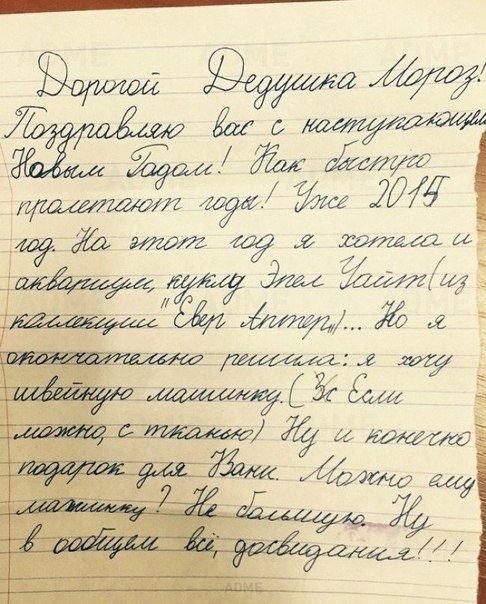 Дорогой Дедушка Мороз!
Поздравляю вас с наступающем
Новым Гадом! Как быстро
пролетают годы! Уже 2015
год. На этот год я хотела и
аквариум, куклу Эпел Уайт (из
каллекции "Евер Аптер„)... Но я
окончательно решила: я хочу
швейную машинку. (Если
можно, с тканью) Ну и конечно
подарок для Вани. Можно ему
машинку? Не большую. Ну
в вобщем всё, досвидания!!!
ADME